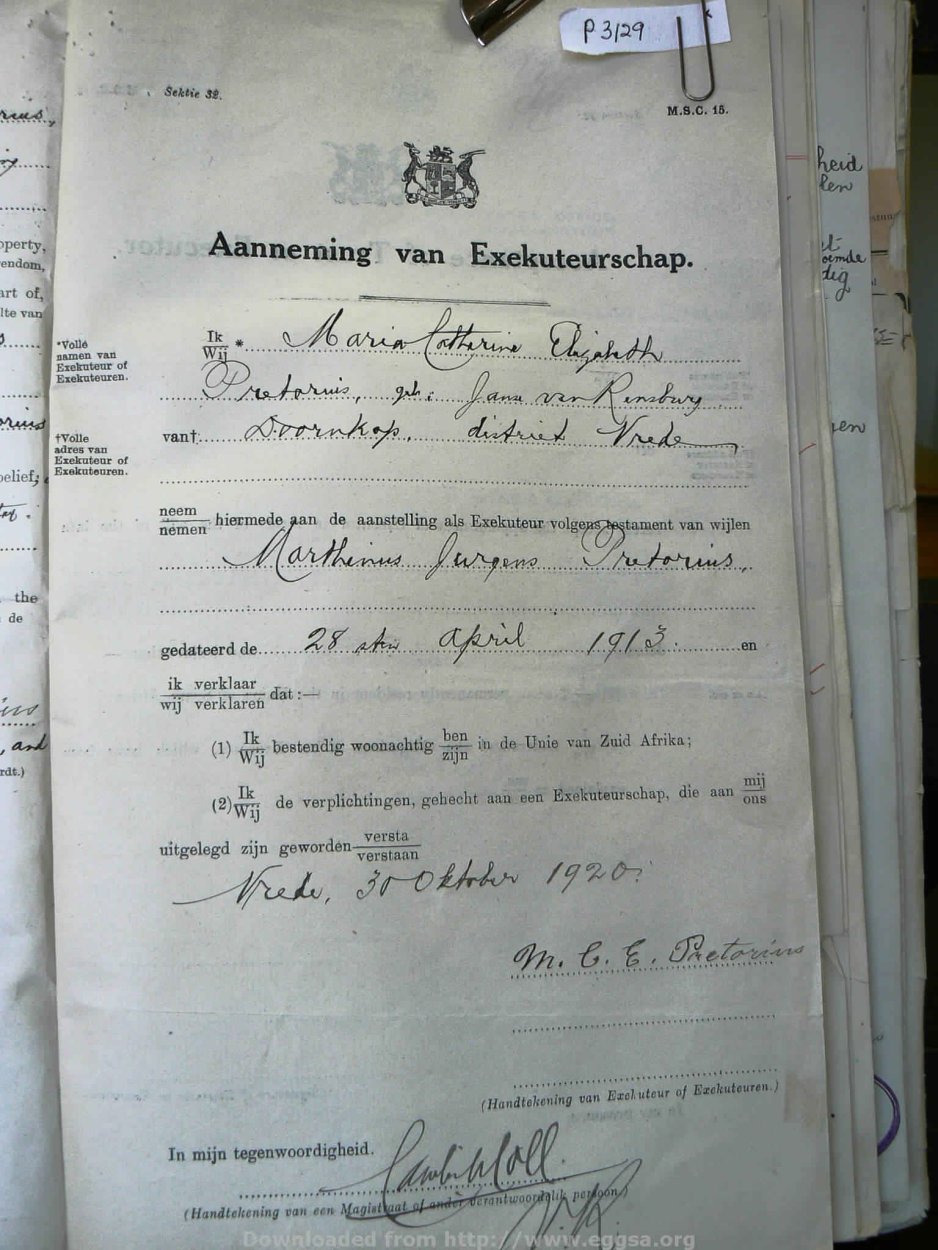 P3/29
Sektie 32.
M.S.C. 15.
Aanneming van Exekuteurschap.
*Volle
namen van
Exekuteur of
Exekuteuren.
Ik
Wij * Maria Catharina Elizabeth
Pretorius, geb: Janse van Rensburg
†Volle
adres van
Exekuteur of
Exekuteuren.
van† Doornkop, distriet Vrede
neem
nemen hiermede aan de aanstelling als Exekuteur volgens testament van wijlen
Marthinus Jurgens Pretorius,
gedateerd de 28 sten April 1913. en
ik verklaar
wij verklaren dat :—
(1) Ik
Wij bestendig woonachtig ben
zijn in de Unie van Zuid Afrika;
(2) Ik
Wij de verplichtingen, gehecht aan een Exekuteurschap, die aan mij
ons
uitgelegd zijn geworden versta
verstaan
Vrede, 30 Oktober 1920.
M. C. E. Pretorius
(Handtekening van Exekuteur of Exekuteuren.)
In mijn tegenwoordigheid.
(Handtekening van een Magistraat of ander verantwoordelik persoon)
V.R.
Downloaded from http://www.eggsa.org
operty,
endom,
art of,
lte van
orius
belief;
the
de
, and
rdt.)
heid
len
oemde
dig